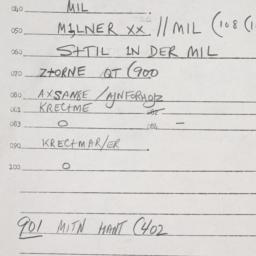 040 MIL
050 M1LNER XX // MIL (108 (1
060 STIL IN DER MIL
070 ZTORNE QT (900
080 AXSANGE /
081 KRECTME
083 O
090 KRECTMAR/ER
100 O
901 MITN HANT (402